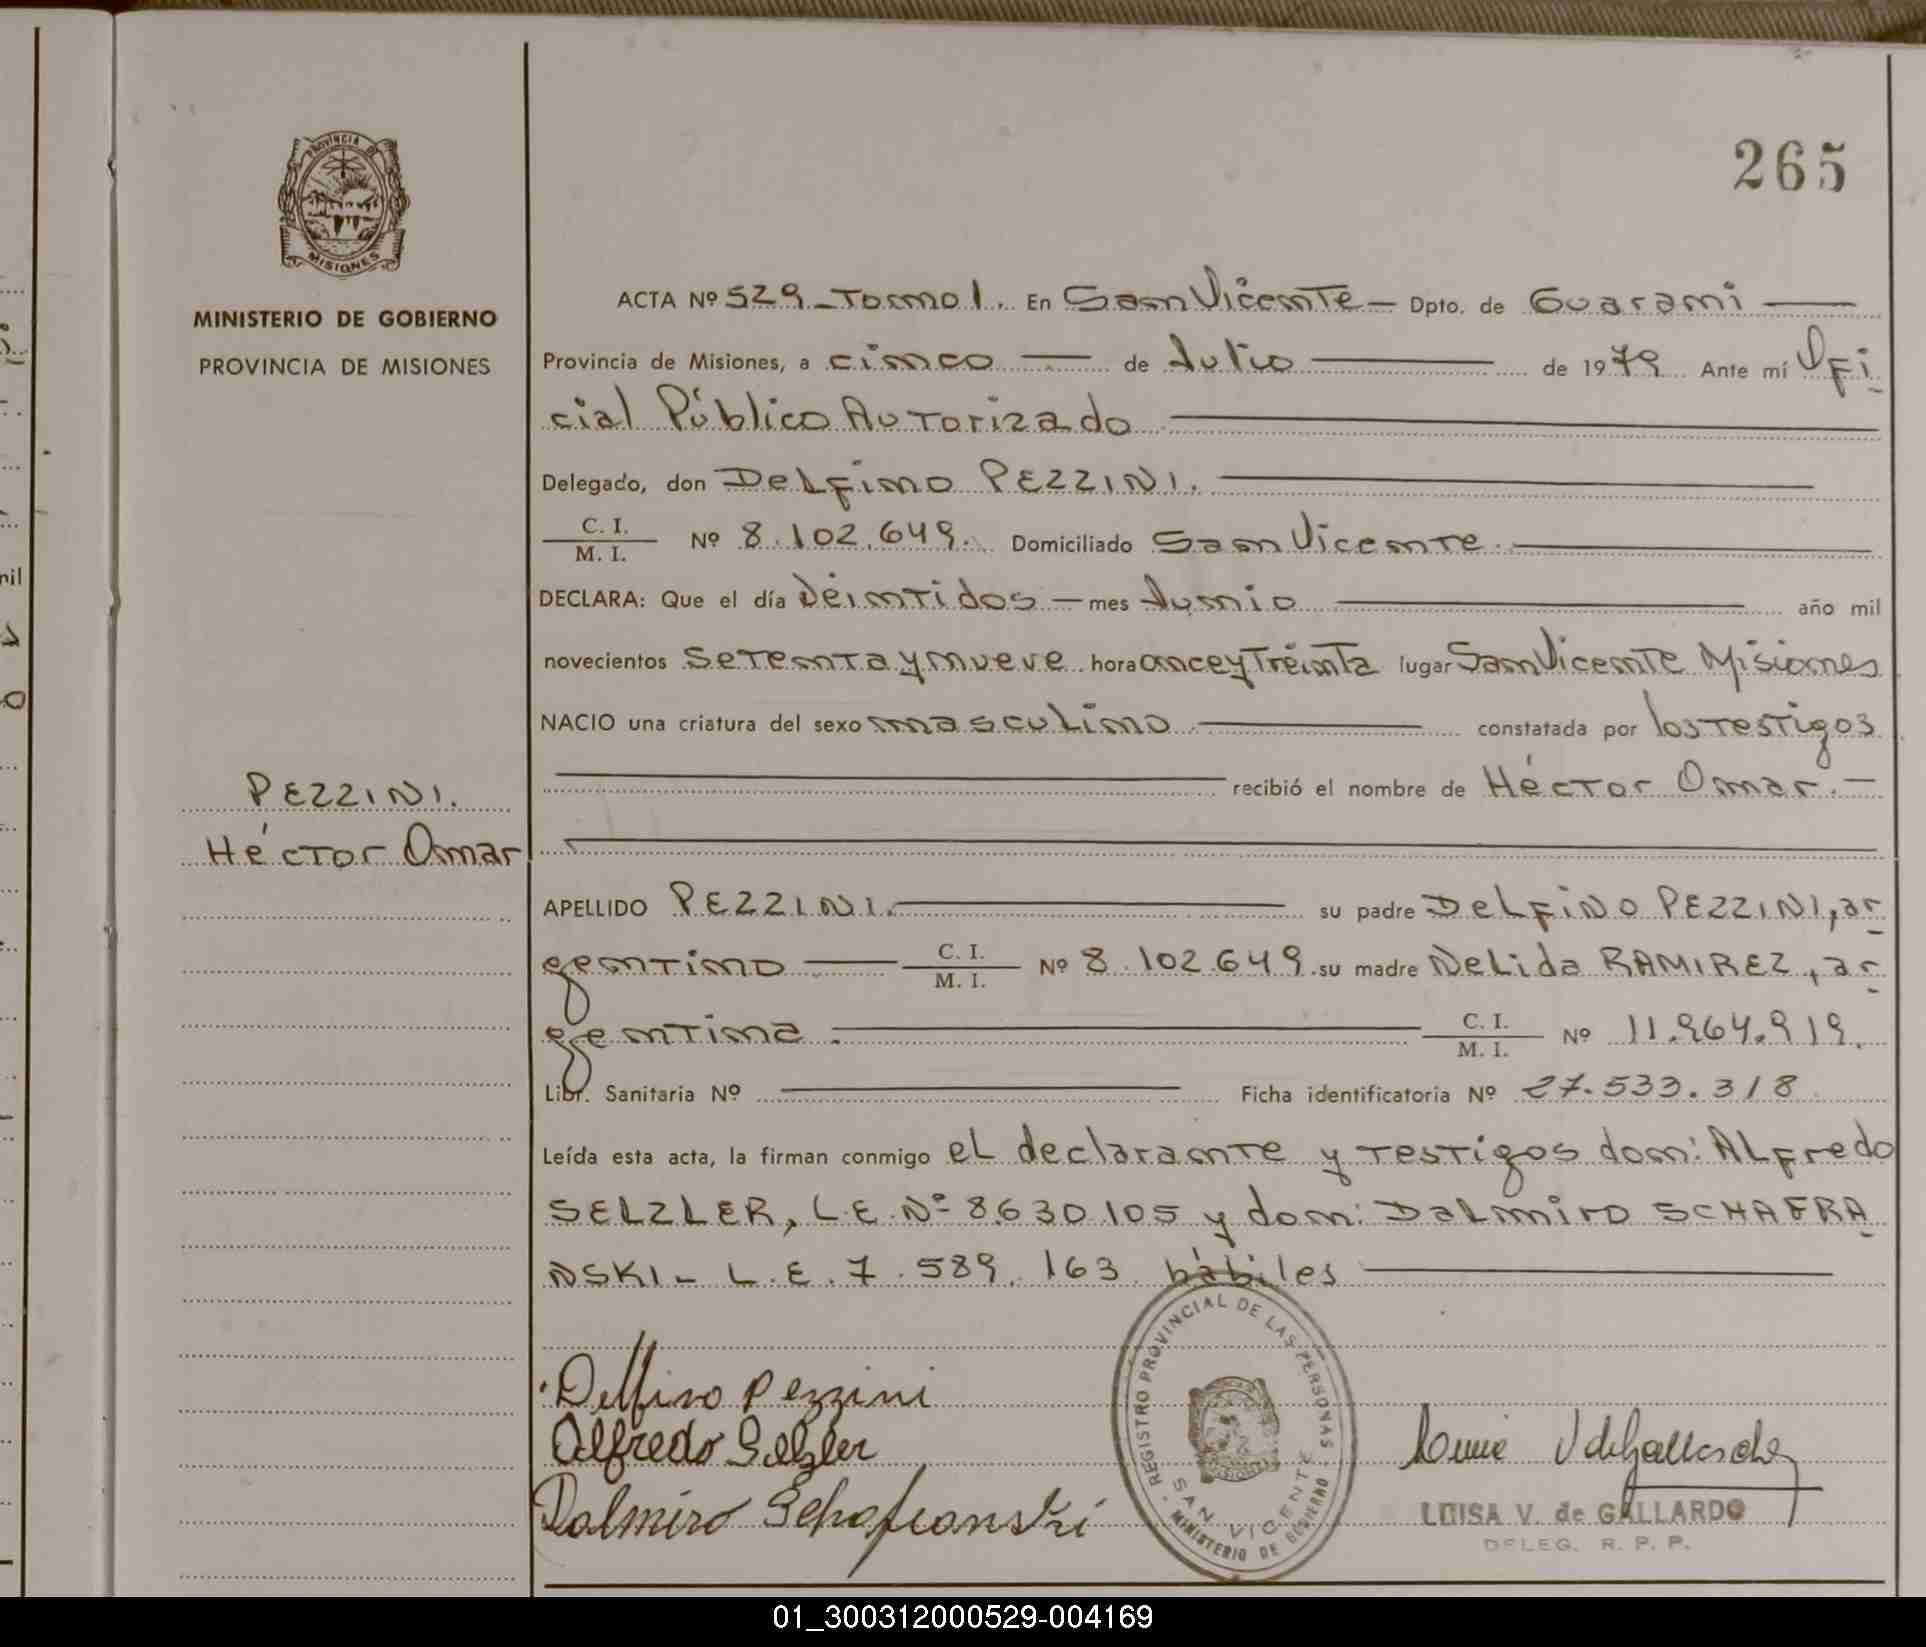 265
PROVINCIA DE
MISIONES
MINISTERIO DE GOBIERNO
PROVINCIA DE MISIONES
ACTA Nº 529 - Tomo 1. En San Vicente — Dpto. de Guarani —
Provincia de Misiones, a cinco — de Julio — de 1979 Ante mí Ofi
cial Público Autorizado —
Delegado, don Delfino PEZZINI. —
C. I.
M. I. Nº 8.102.649. Domiciliado San Vicente. —
DECLARA: Que el día Véintidos — mes Junio — año mil
novecientos setenta y nueve hora once y Tréinta lugar San Vicente Misiones
NACIO una criatura del sexo masculino — constatada por los testigos
— recibió el nombre de Héctor Omar. —
PEZZINI.
Héctor Omar
APELLIDO PEZZINI. — su padre DeLFiNO PEZZINI, ar
gentino — C. I.
M. I. Nº 8.102.649. su madre NeLida RAMIREZ, ar
gentina. — C. I.
M. I. Nº 11.964.919.
Libr. Sanitaria Nº — Ficha identificatoria Nº 27.533.318
Leída esta acta, la firman conmigo el declarante y testigos don: ALfredo
SELZLER, L.E. Nº 8.630.105 y don: DaLmiro SCHAFRA
NSKI - L.E. 7.589.163 hábiles —
Delfino Pezzini
Alfredo Selzler
Dalmiro Schafranski
REGISTRO PROVINCIAL DE LAS PERSONAS
SAN VICENTE
MINISTERIO DE GOBIERNO
LUISA V. de GALLARDO
DELEG. R. P. P.
01_300312000529-004169